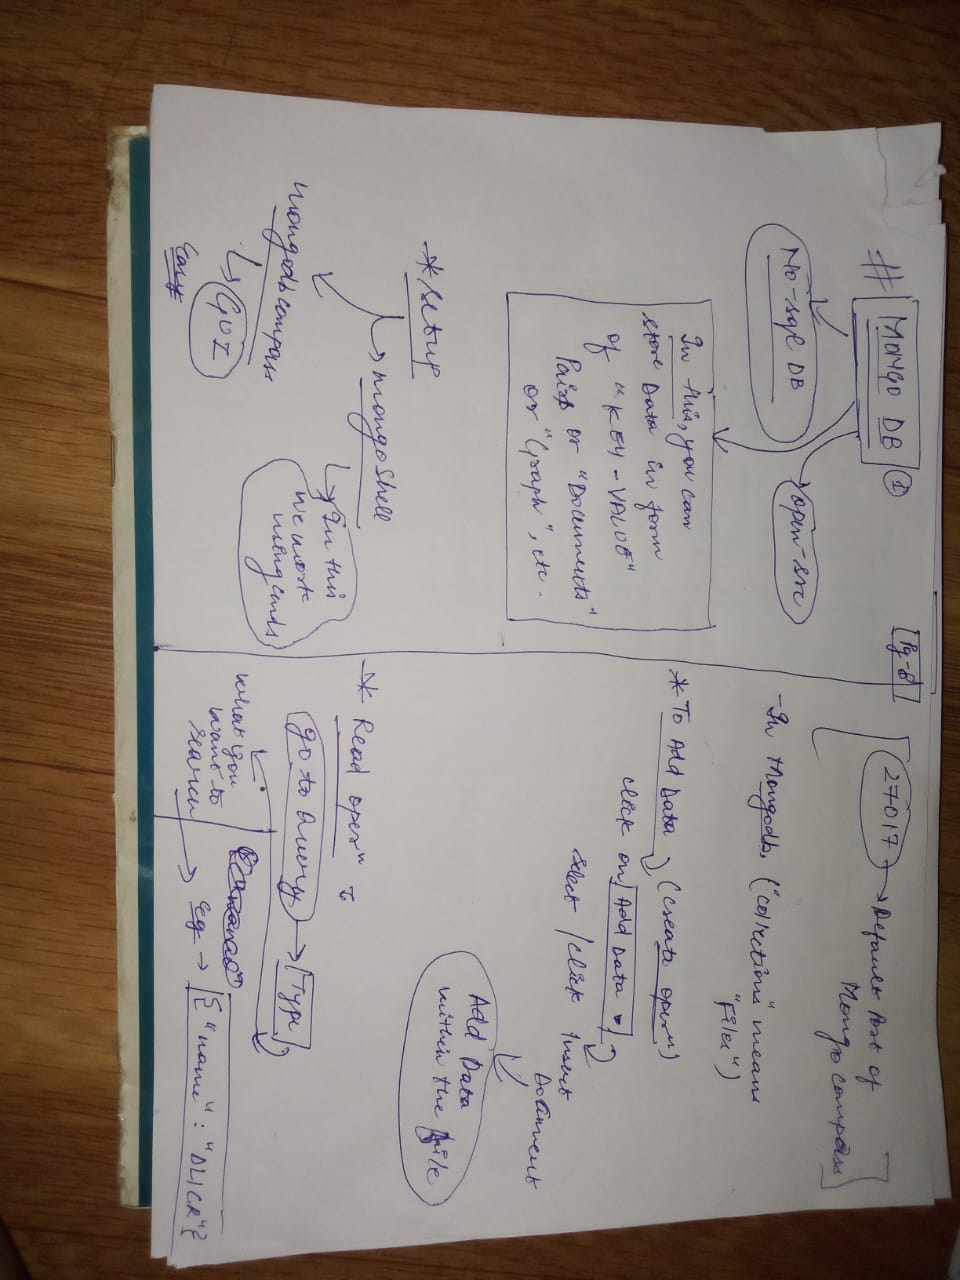 # MONGO DB ①
No-sql DB
open-src
In this, you can
store Data in form
of "KEY-VALUE"
Pairs or "Documents"
or "Graph", etc.
* Setup
mongoshell
In this
we work
using cmds
mongodb compass
GUI
Easy
[Pg-8]
27017 → Default Port of
Mongo compass
- In Mongodb, ("collections" means
"Files")
* To Add Data (create operⁿ)
click on Add Data
select / click Insert
Document
Add Data
within the file
* Read operⁿ
go to Query → Type
what you
want to
search → Eg → {"name" : "DLICR"}